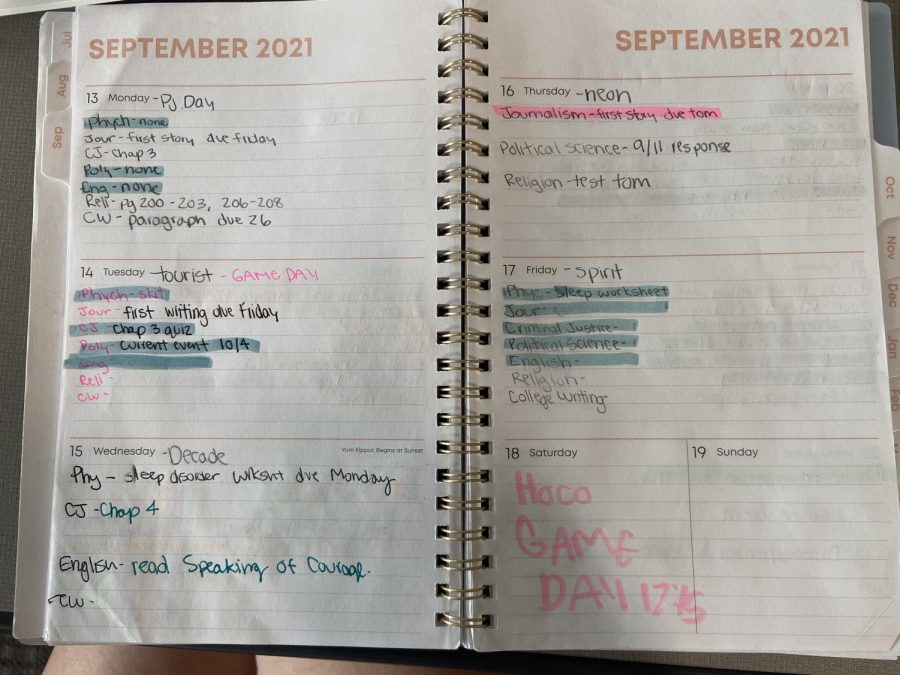 Jul
Aug
Sep
SEPTEMBER 2021
13 Monday - Pj Day
Phych-none
Jour-first story due friday
CJ-Chap 3
Poly-none
Eng-none
Reli-pg 200-203, 206-208
CW- paragraph due 26
14 Tuesday -tourist - GAME DAY
Phych-skit
Jour- first writing due Friday
CJ- Chap 3 quiz
Poly- current event 10/4
Eng-
Reli-
CW-
15 Wednesday -Decade
Yom Kippur, Begins at Sunset
Phy - sleep disorder wrksht due Monday
CJ -Chap 4
English- read Speaking of Courage.
CW-
SEPTEMBER 2021
16 Thursday -neon
Journalism-first story due tom
Political science- 9/11 response
Religion-test tom
17 Friday - spirit
Phyc- Sleep worksheet
Jour-
Criminal Justice-
Political Science-
English-
Religion-
College Writing-
18 Saturday
Hoco
GAME
DAY 12:45
19 Sunday
Oct
Nov
Dec
Jan
Feb